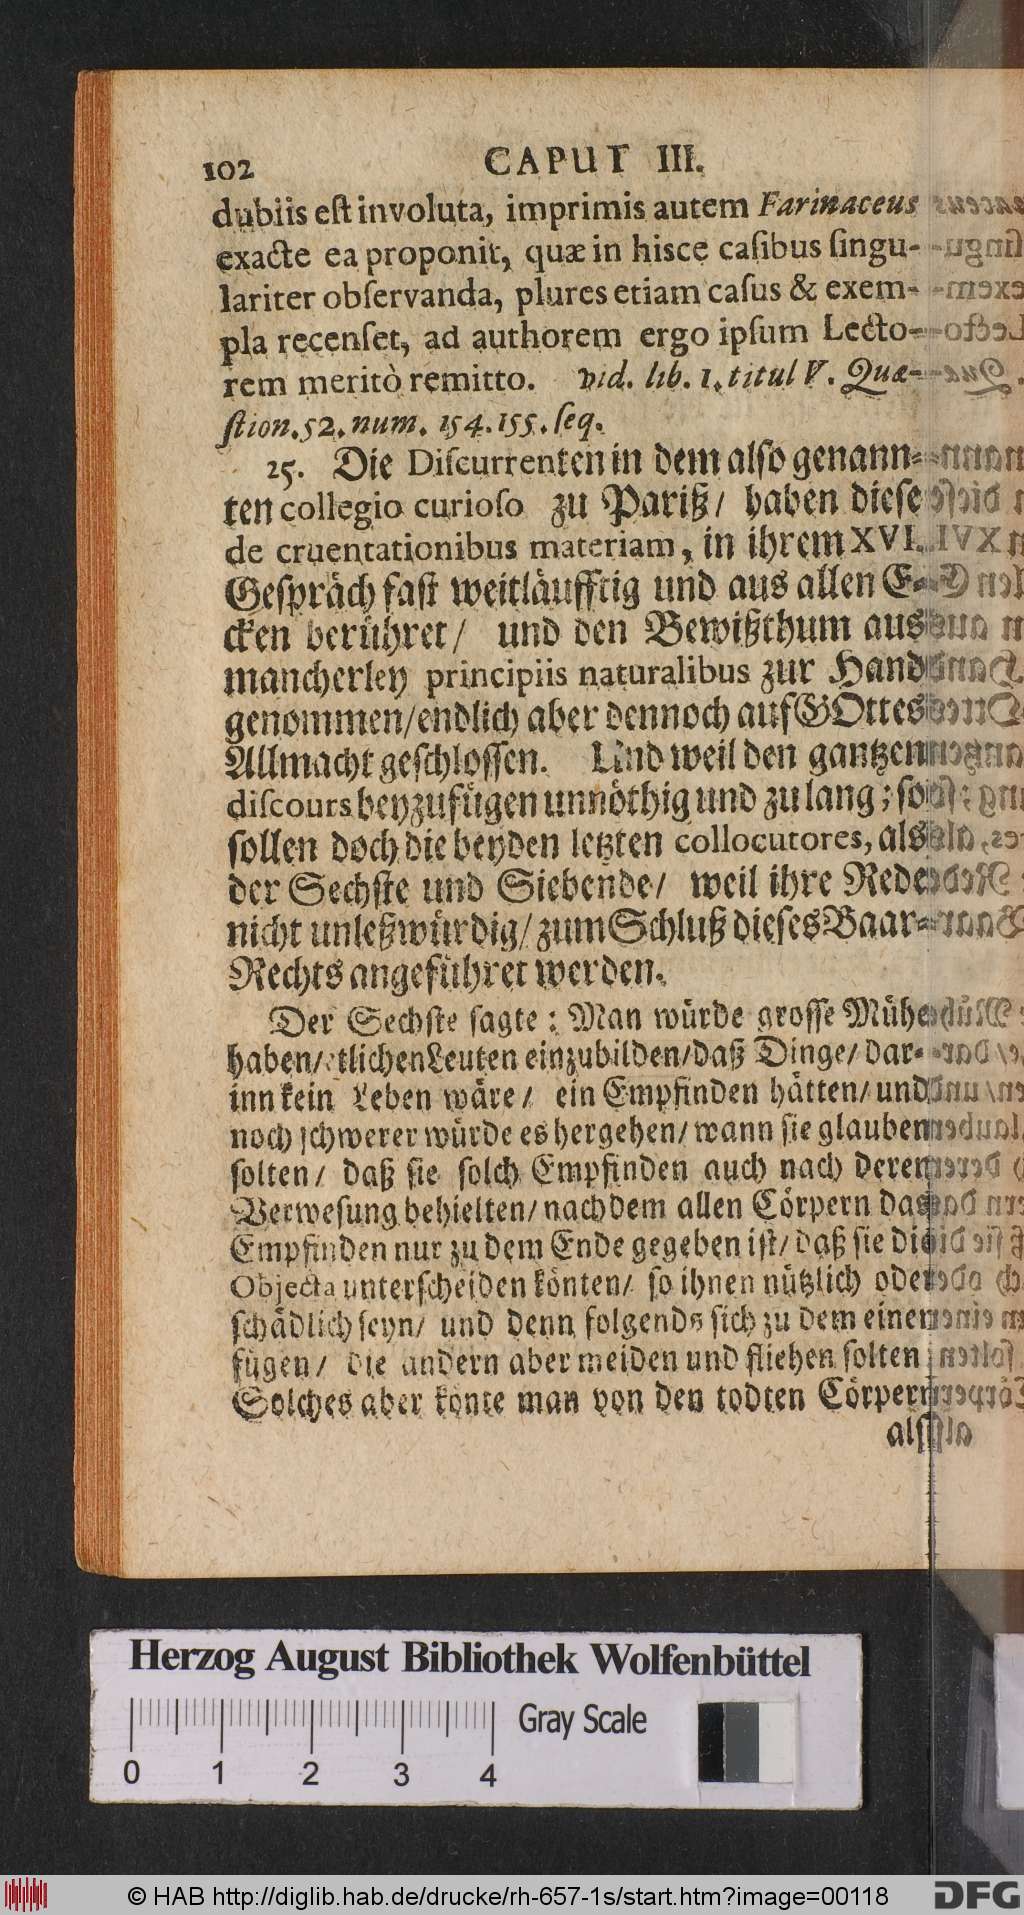 102 CAPUT III.
dubiis est involuta, imprimis autem Farinaceus
exacte ea proponit, quæ in hisce casibus singu-
lariter observanda, plures etiam casus & exem-
pla recenset, ad authorem ergo ipsum Lecto-
rem meritò remitto. vid. lib. 1. titul V. Quæ-
stion. 52. num. 154. 155. seq.
25. Die Discurrenten in dem also genann-
ten collegio curioso zu Pariß/ haben diese
de cruentationibus materiam, in ihrem XVI.
Gespräch fast weitläufftig und aus allen E-
cken berühret/ und den Bewißthum aus
mancherley principiis naturalibus zur Hand
genommen/ endlich aber dennoch auf GOttes
Allmacht geschlossen. Und weil den gantzen
discours beyzufügen unnöthig und zu lang; so
sollen doch die beyden letzten collocutores, als
der Sechste und Siebende/ weil ihre Rede
nicht unleßwürdig/ zum Schluß dieses Baar-
Rechts angeführet werden.
Der Sechste sagte: Man würde grosse Mühe
haben/ etlichen Leuten einzubilden/ daß Dinge/ dar-
inn kein Leben wäre/ ein Empfinden hätten/ und
noch schwerer würde es hergehen/ wann sie glauben
solten/ daß sie solch Empfinden auch nach deren
Verwesung behielten/ nachdem allen Cörpern das
Empfinden nur zu dem Ende gegeben ist/ daß sie die
Objecta unterscheiden könten/ so ihnen nützlich oder
schädlich seyn/ und denn folgends sich zu dem einen
fügen/ die andern aber meiden und fliehen solten
Solches aber konte man von den todten Cörpern
als
Herzog August Bibliothek Wolfenbüttel
Gray Scale
0 1 2 3 4
© HAB http://diglib.hab.de/drucke/rh-657-1s/start.htm?image=00118
DFG